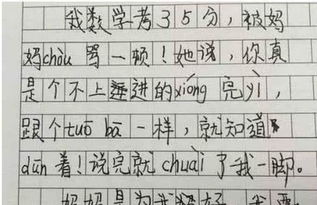 我数学考35分，被妈
妈chòu骂一顿！她说，你真
是个不上进的xióng 完yì，
跟个tuō bā一样，就知道
dūn着！说完就chuài了我一脚。
妈妈是为我好，我要